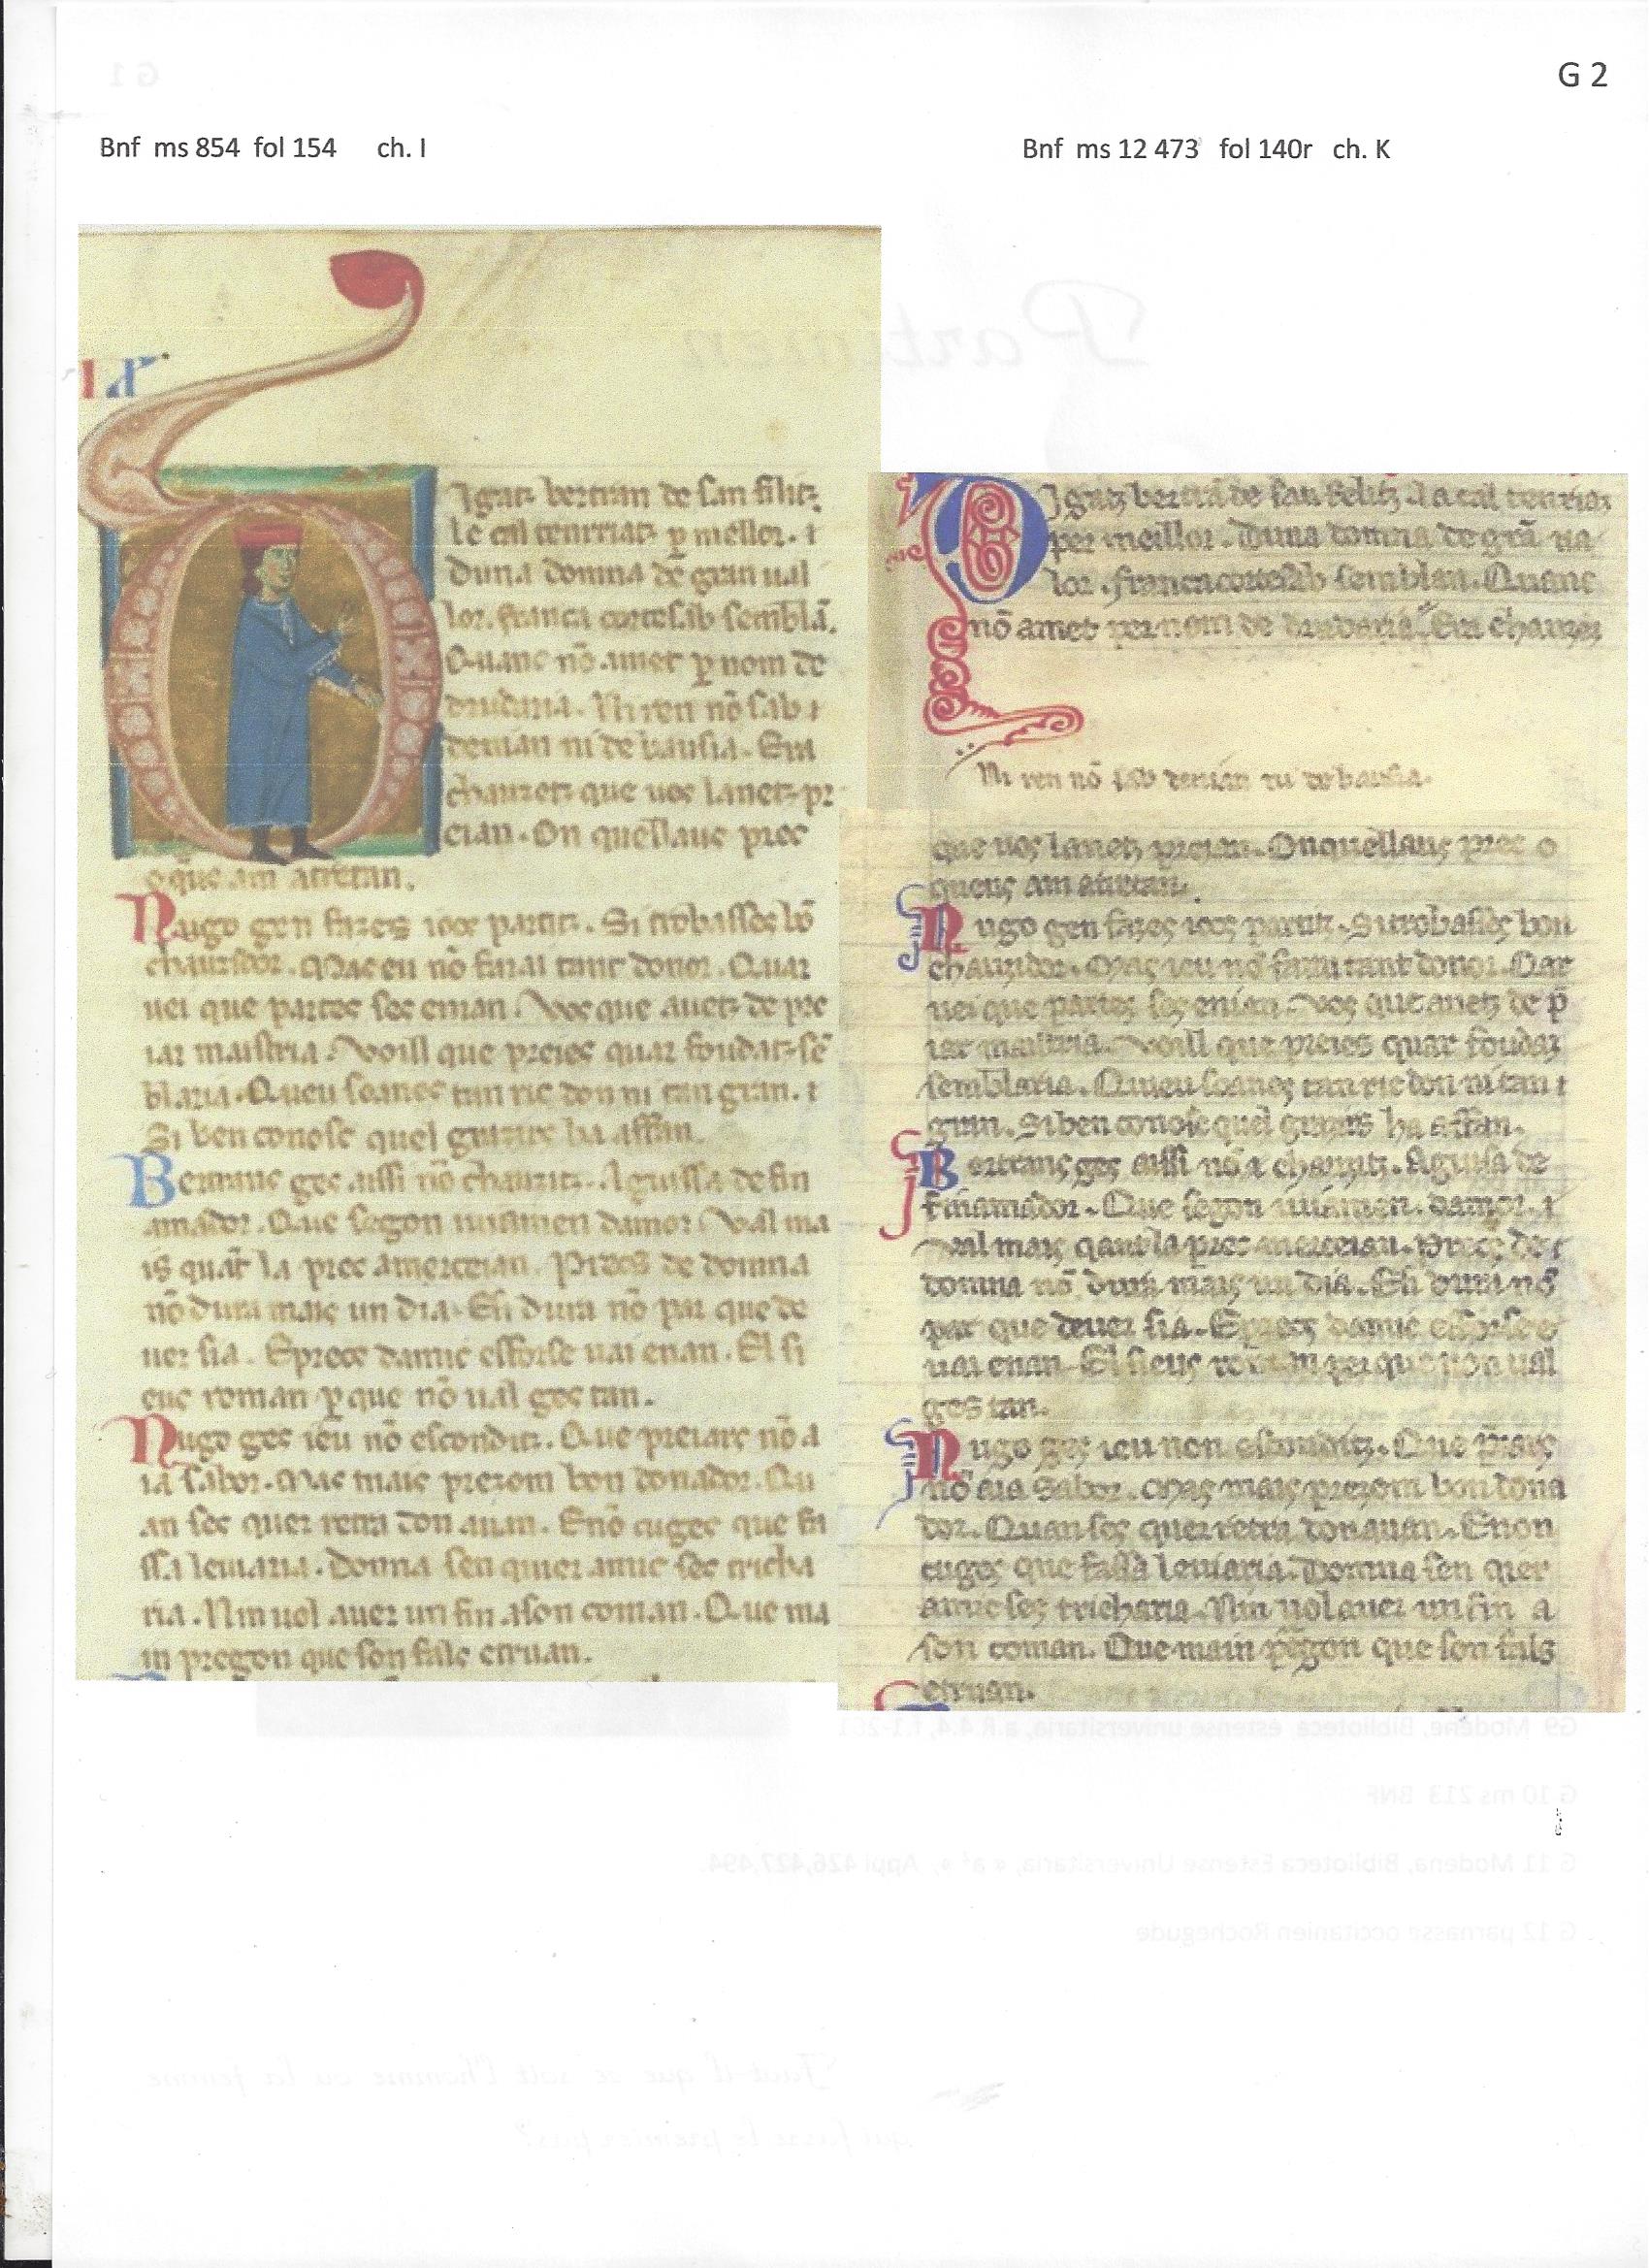 G 2
Bnf ms 854 fol 154 ch. I
Bnf ms 12 473 fol 140r ch. K
Igatz bertran de san filitz
le cal tenrriatz p̱ mellor.
Duna domna de gran ual
lor. franca cortesab semblā.
Quanc nō amet p̱ nom de
drudaria. Ni ren nō sab
denian ni de bausia. Em
chauzetz que uos lanetz pr
eian. On quellaus prec
o q̄us am atretan.
Nugo gen fazes iocs partitz. Si trobasses bō
chauzidor. Mas eu nō farai tant donor. Quar
uei que partes ses enian. Vos que auetz de pre
iar maistria. Voill que preies quar foudatz sē
blaria. Queu soanes tan ric don ni tan gran.
Si ben conosc quel guizars ha affan.
Bertrans ges aissi nō chauzitz. Aguissa de fin
amador. Que segon uisamen damor. Val ma
is quāt la prec amerceian. Precs de domna
nō dura mais un dia. Esi dura nō par que de
uer sia. Eprecs damic esforse uai enan. El si
eus roman p̱ que nō ual ges tan.
Nugo ges ieu nō esconditz. Que preiars nō a
ia sabor. Mas mais prezom bon donador. Qu
an ses quer retra don auan. Enō cuges que fa
ssa leuiaria. Donna sen quier amic ses tricha
ria. Nin uol auer un fin ason coman. Que ma
in pregon que son fals etruan.
Igatz bertrā de san felitz. La cal tenriaz
per meillor. Duna domna de grā ua
lor. franca cortesab semblan. Quanc
nō amet per nom de drudaria. Em chauzez
Ni ren nō sab denian ni de bausia.
que uos lanetz preian. Onquellaus prec o
queus am atretan.
Nugo gen fazes iocs partitz. Si trobasses bon
chauzidor. Mas ieu nō farai tant donor. Car
uei que partes ses enian. Vos que auetz de p̄
iar maistria. Voill que preies quar foudaz
semblaria. Quieu soanes tan ric don ni tan
gran. Si ben conosc quel guizars ha affan.
Bertrans ges aissi nō a chauzitz. Aguisa de
finamador. Que segon uisamen. damor.
Val mais qant la prec amerceian. Precs de
domna nō dura mais un dia. Esi dura nō
par que deuer sia. Eprecs damic esforse
uai enan. El sieus roman per que non ual
ges tan.
Nugo ges ieu non esconditz. Que p̄iars
nō aia sabor. Mas mais prezom bon dona
dor. Quan ses quer retra don auan. Enon
cuges que fassa leuiaria. Domna sen qier
amic ses tricharia. Nin uol auer un fin a
son coman. Que main p̄gon que son fals
etruan.